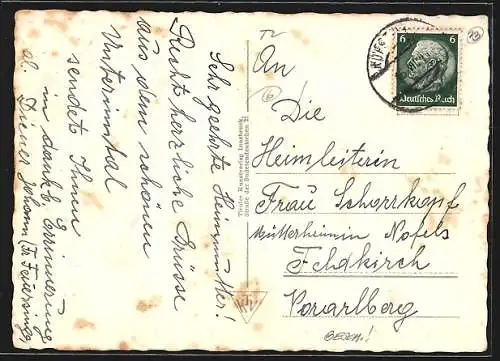 Sehr geehrte Heimmutter!
Recht herzliche Grüsse
aus dem schönen
Unterinntal
sendet Ihnen
in dankb. Erinnerung
d. Diener Johann
Tiroler Kunstverlag Innsbruck
An
Die
Heimleiterin
Frau Scharrkopf
Mütterheim in Nofels
Feldkirch
Vorarlberg
6 6
Deutsches Reich